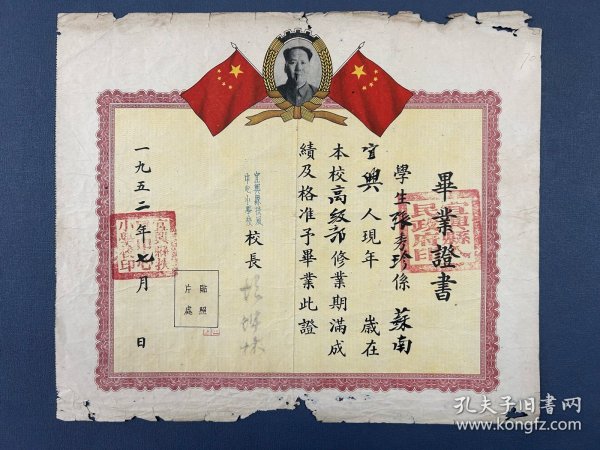 畢業證書
學生張秀珍係蘇南
宜興人現年 歲在
本校高級部修業期滿成
績及格准予畢業此證
校長
一九五二年七月 日
貼照
片處
宜興縣人
民政府印
孔夫子旧书网
www.kongfz.com